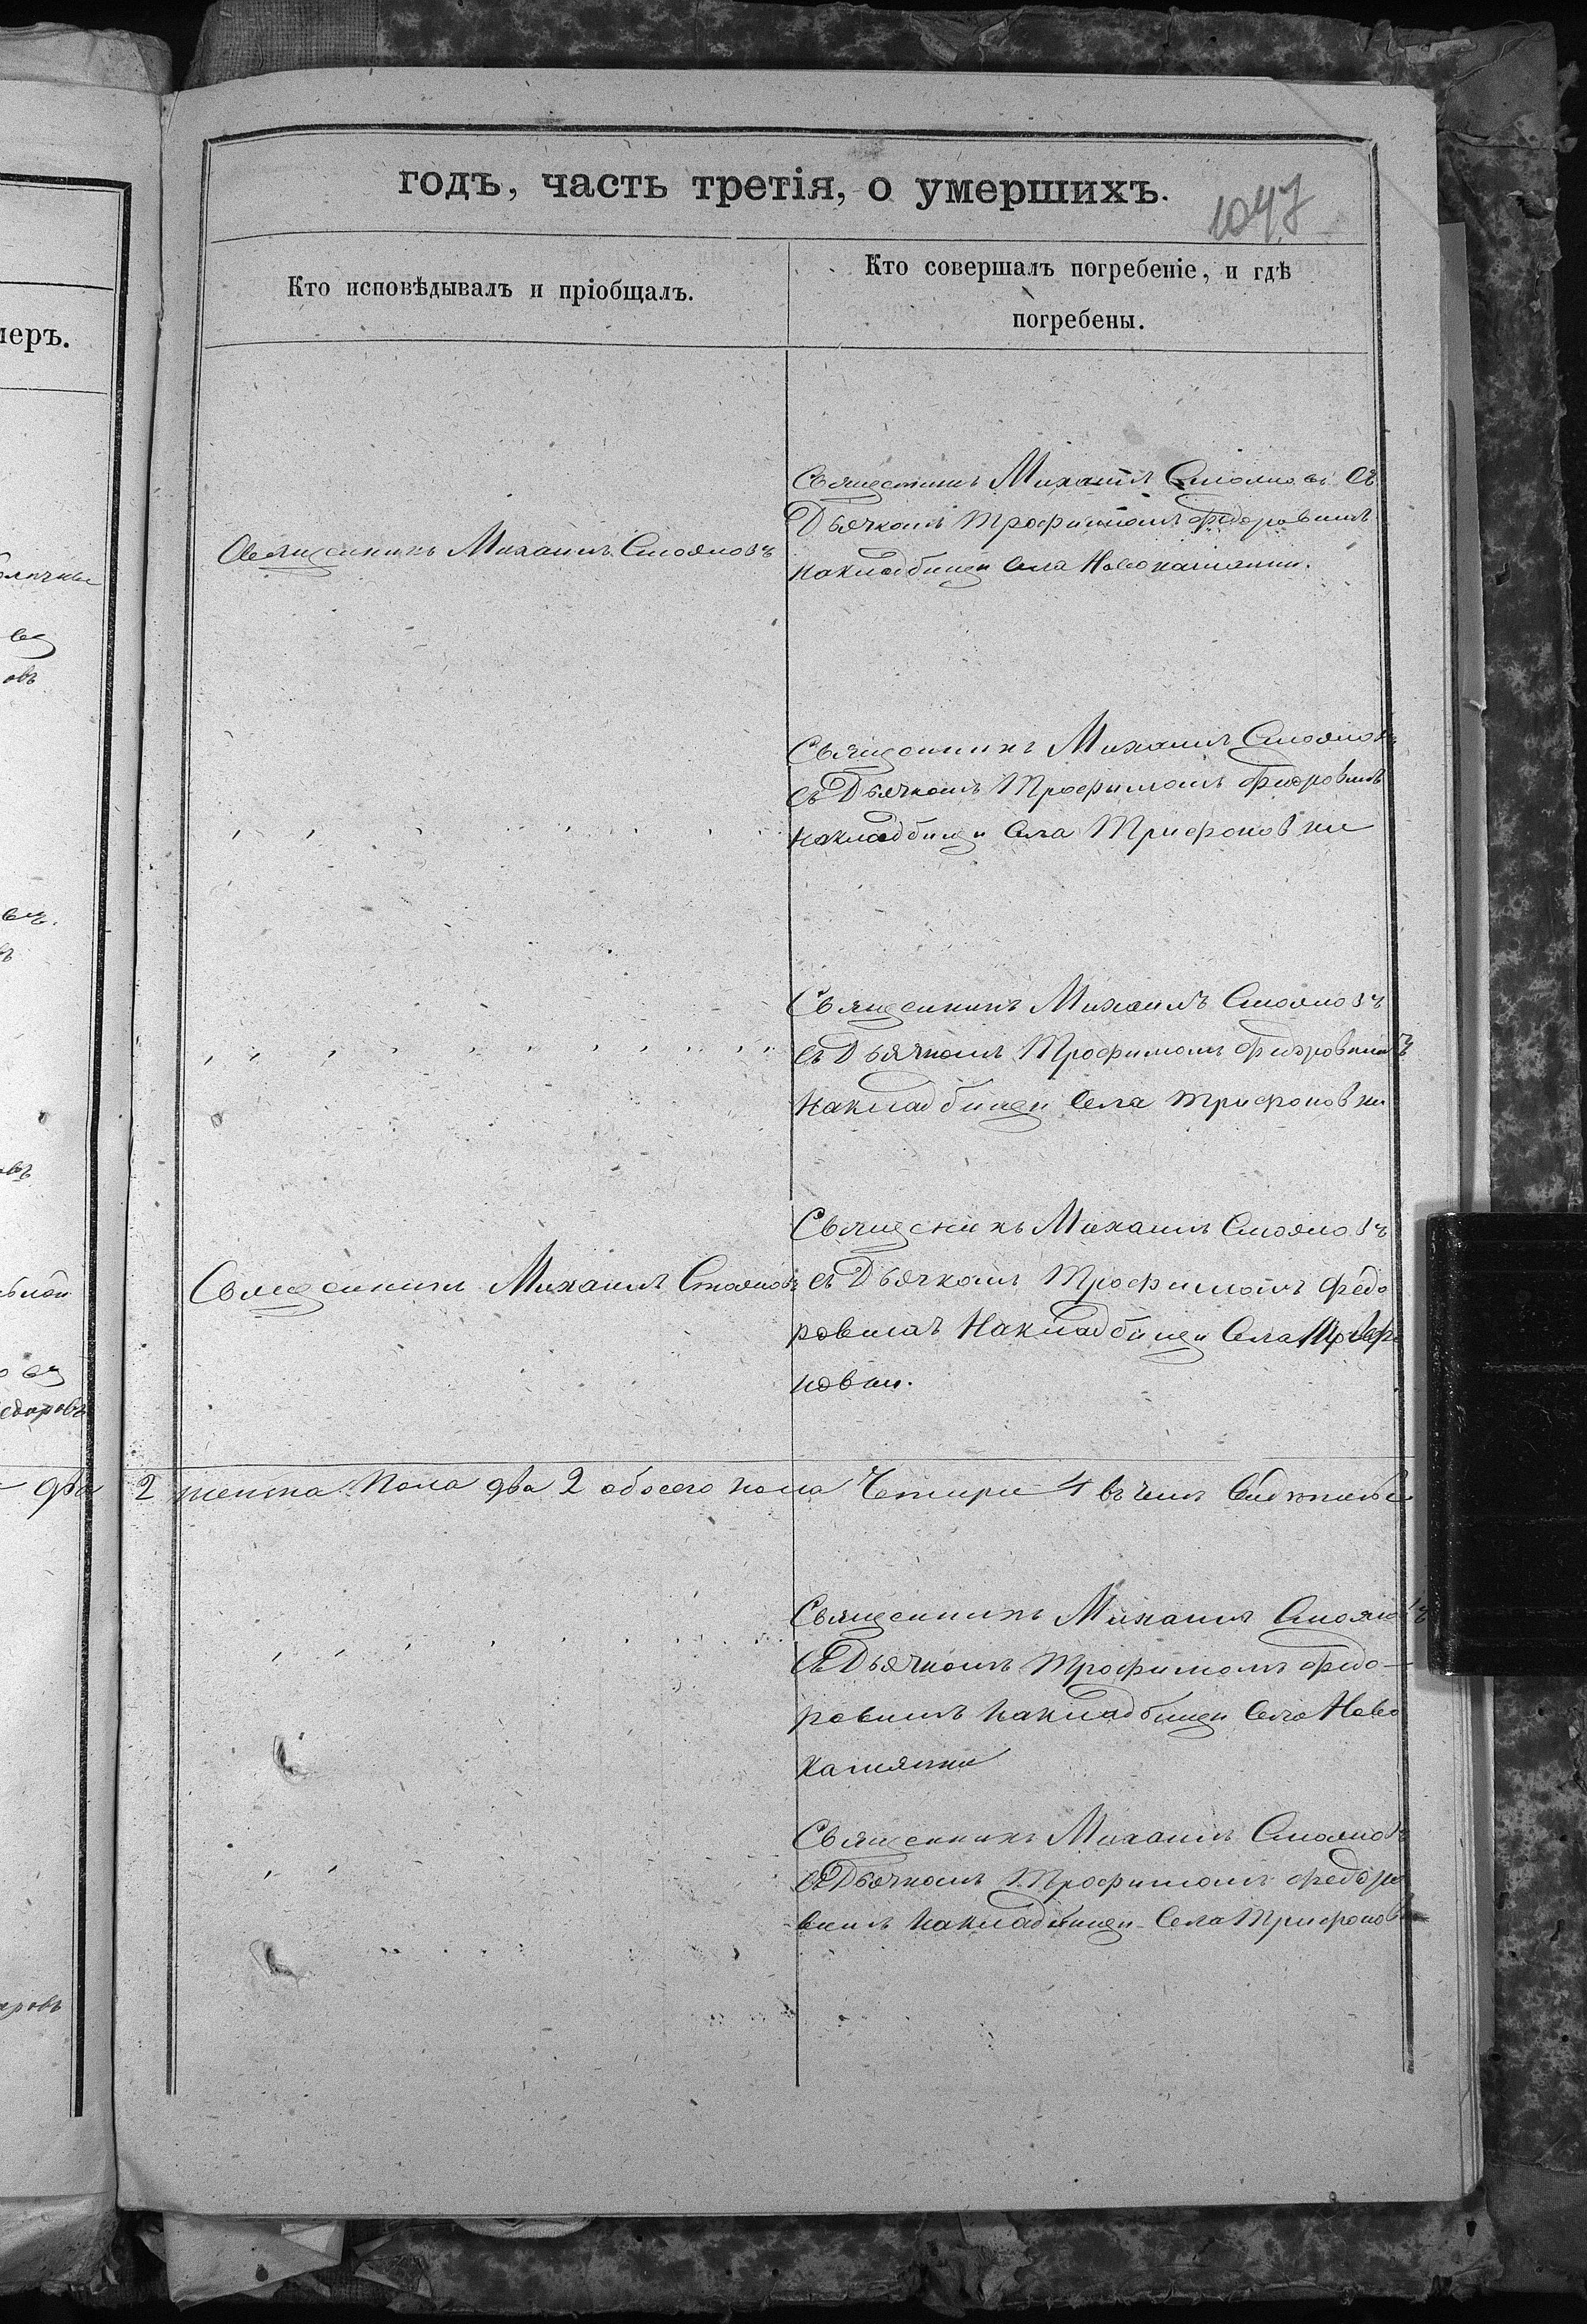 годъ, часть третія, о умершихъ.
1047
меръ.
Кто исповѣдывалъ и пріобщалъ.
Кто совершалъ погребеніе, и гдѣ
погребены.
Священикъ Михаилъ Стояновъ
Священикъ Михаилъ Стояновъ Съ
Дьячкомъ Трофимомъ Федоровимъ
накладбищи Села Новокамянки.
Священникъ Михаилъ Стояновъ
Съ Дьячкомъ Трофимомъ Фидровимъ
накладбищи Села Трифоновки
Священикъ Михаилъ Стояновъ
съ Дьячкомъ Трофимомъ Фидоровимъ
Накладбищи Села Трифоновки
Священикъ Михаилъ Стояновъ
Священикъ Михаилъ Стояновъ
съ Дьячкомъ Трофимомъ Федо
ровимъ Накладбищи Села
новки.
два 2 женска Пола два 2 обоего пола Четири 4 въ чемъ
Священникъ Михаилъ Стояновъ
Съ Дьячкомъ Трофимомъ Федо-
ровимъ Накладбищи Села Ново
Камянки
Священникъ Михаилъ Стояновъ
Съ Дьячкомъ Трофимомъ Федоро
вимъ Накладбищи Села Трифонов